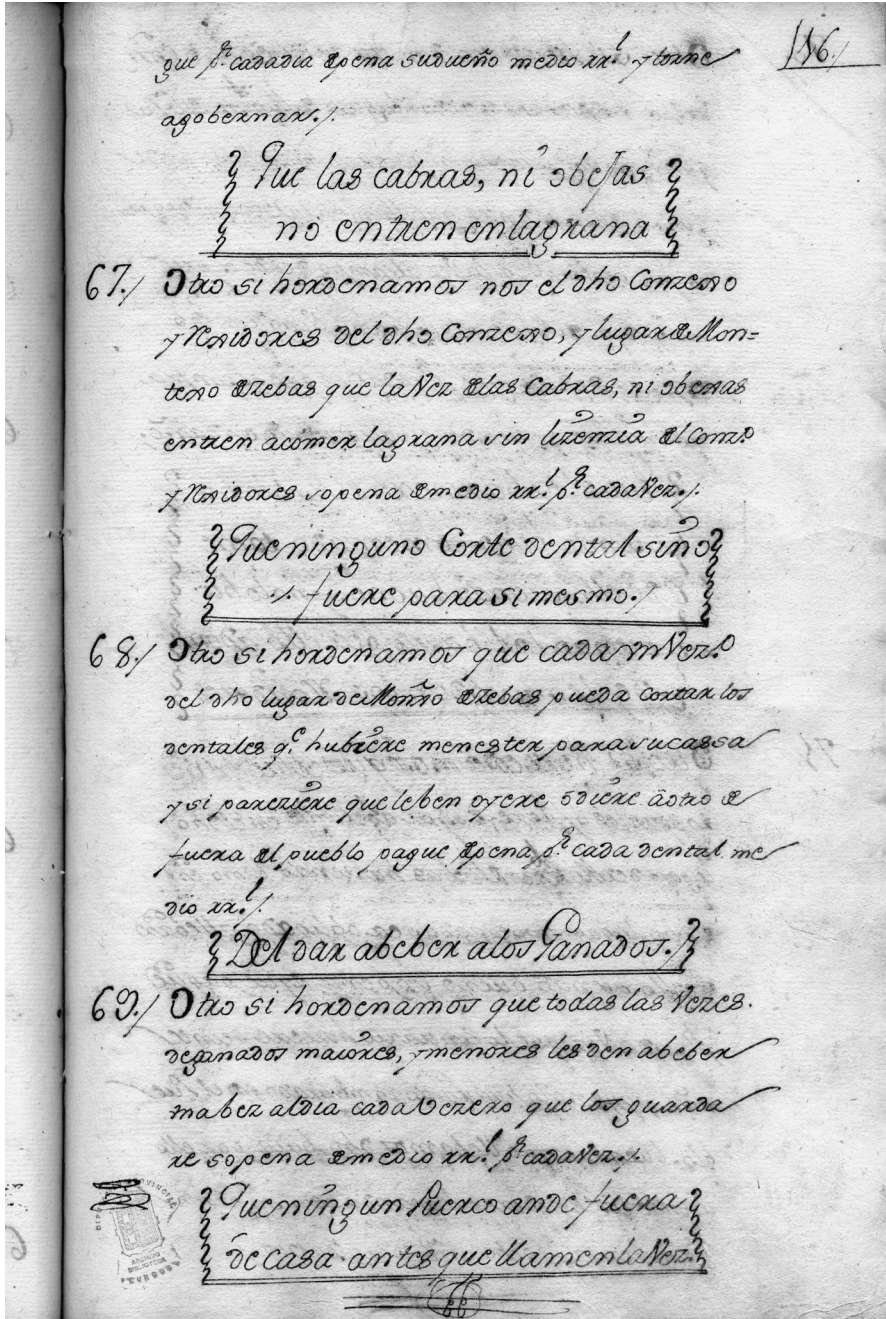 116./
que pr. cada dia de pena su dueño medio rrl. y torne
a gobernar./.
Que las cabras, ni obejas
no entren en la grana
67./ Otro si hordenamos nos el dho Conzexo
y Rexidores del dho Conzexo, y lugar de Mon=
texo de Zebas que la Vez de las Cabras, ni obexas
entren a comer la grana sin lizenzia del Conzo.
y Rexidores so pena de medio rrl. pr. cada Vez./.
Que ninguno Corte dental sino
./. fuere para si mesmo./
68./ Otro si hordenamos que cada vn Vezo.
del dho lugar de Monro de Zebas pueda cortar los
dentales qe. hubiere menester para su cassa
y si pareziere que leben oyere ô diere â otro de
fuera del pueblo pague de pena pr. cada dental me
dio rrl./.
Del dar a beber a los Ganados./
69./ Otro si hordenamos que todas las Vezes.
de ganados maiores, y menores les den a beber
una bez al dia cada Vezero que los guarda
re so pena de medio rrl. pr. cada Vez./.
Que ningun Puerco ande fuera
de casa antes que llamen la Vez.
ARCHIVO
BIBLIOTECA